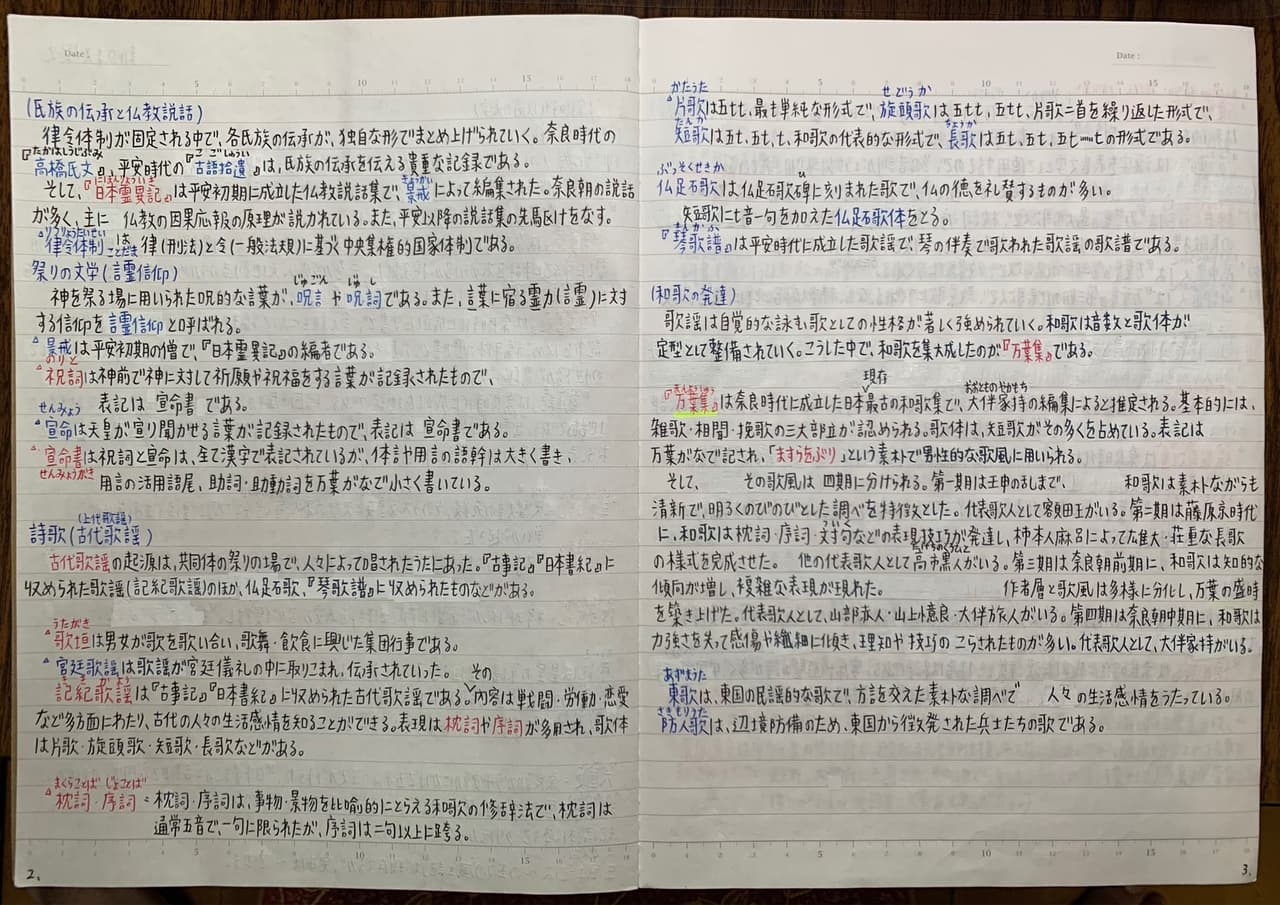 Date :
(氏族の伝承と仏教説話)
律令体制が固定される中で、各氏族の伝承が、独自な形でまとめ上げられていく。奈良時代の
『高橋氏文』、平安時代の『古語拾遺』は、氏族の伝承を伝える貴重な記録である。
そして、『日本霊異記』は平安初期に成立した仏教説話集で、景戒によって編集された。奈良朝の説話
が多く、主に 仏教の因果応報の原理が説かれている。また、平安以降の説話集の先駆けをなす。
△律令体制は、律(刑法)と令(一般法規)に基づく中央集権的国家体制である。
ことだま
祭りの文学(言霊信仰)
じゅごん じゅし
神を祭る場に用いられた呪的な言葉が、呪言や呪詞である。また、言葉に宿る霊力(言霊)に対
する信仰を言霊信仰と呼ばれる。
△景戒は平安初期の僧で、『日本霊異記』の編者である。
のりと
△祝詞は神前で神に対して祈願や祝福をする言葉が記録されたもので、
せんみょう 表記は 宣命書 である。
△宣命は天皇が宣り聞かせる言葉が記録されたもので、表記は 宣命書である。
△宣命書は祝詞と宣命は、全て漢字で表記されているが、体言や用言の語幹は大きく書き、
せんみょうがき 用言の活用語尾、助詞・助動詞を万葉がなで小さく書いている。
(上代歌謡)
詩歌(古代歌謡)
古代歌謡の起源は、共同体の祭りの場で、人々によって唱されたうたにあった。『古事記』『日本書紀』に
収められた歌謡(記紀歌謡)のほか、仏足石歌、『琴歌譜』に収められたものなどがある。
うたがき
△歌垣は男女が歌を歌い合い、歌舞・飲食に興じた集団行事である。
△宮廷歌謡は歌謡が宮廷儀礼の中に取りこまれ、伝承されていった。 その
記紀歌謡は『古事記』『日本書紀』に収められた古代歌謡である。内容は戦闘・労働・恋愛
など多方面にわたり、古代の人々の生活感情を知ることができる。表現は枕詞や序詞が多用され、歌体
は片歌・旋頭歌・短歌・長歌などがある。
まくらことば じょことば
△枕詞・序詞 = 枕詞・序詞は、事物・景物を比喩的にとらえる和歌の修辞法で、枕詞は
通常五音で、一句に限られたが、序詞は二句以上に跨る。
2.
Date :
かたうた せどうか
△片歌は五七七、最も単純な形式で、旋頭歌は五七七、五七七、片歌二首を繰り返した形式で、
たんか ちょうか
短歌は五七、五七、七、和歌の代表的な形式で、長歌は五七、五七、五七……七の形式である。
ぶっそくせきか ひ
仏足石歌は仏足石歌碑に刻まれた歌で、仏の徳を礼賛するものが多い。
短歌に七音一句を加えた仏足石歌体をとる。
きんかふ
『琴歌譜』は平安時代に成立した歌謡で、琴の伴奏で歌われた歌謡の歌譜である。
(和歌の発達)
歌謡は自覚的な詠む歌としての性格が著しく強められていく。和歌は音数と歌体が
定型として整備されていく。こうした中で、和歌を集大成したのが『万葉集』である。
現在
まんようしゅう おおとものやかもち
『万葉集』は奈良時代に成立した日本最古の和歌集で、大伴家持の編集によると推定される。基本的には、
雑歌・相聞・挽歌の三大部立が認められる。歌体は、短歌がその多くを占めている。表記は
万葉がなで記され、「ますらをぶり」という素朴で男性的な歌風に用いられる。
そして、 その歌風は 四期に分けられる。第一期は壬申の乱まで、 和歌は素朴ながらも
清新で、明るくのびのびとした調べを特徴とした。代表歌人として額田王がいる。第二期は藤原京時代
に、和歌は枕詞・序詞・対句などの表現技巧が発達し、柿本人麻呂によって雄大・荘重な長歌
の様式を完成させた。 他の代表歌人として高市黒人がいる。第三期は奈良朝前期に、和歌は知的な
傾向が増し、複雑な表現が現れた。 作者層と歌風は多様に分化し、万葉の盛時
を築き上げた。代表歌人として、山部赤人・山上憶良・大伴旅人がいる。第四期は奈良朝中期に、和歌は
力強さを失って感傷や繊細に傾き、理知や技巧の こらされたものが多い。代表歌人として、大伴家持がいる。
あずまうた
東歌は、東国の民謡的な歌で、方言を交えた素朴な調べで 人々の生活感情をうたっている。
さきもりうた
防人歌は、辺境防備のため、東国から徴発された兵士たちの歌である。
3.